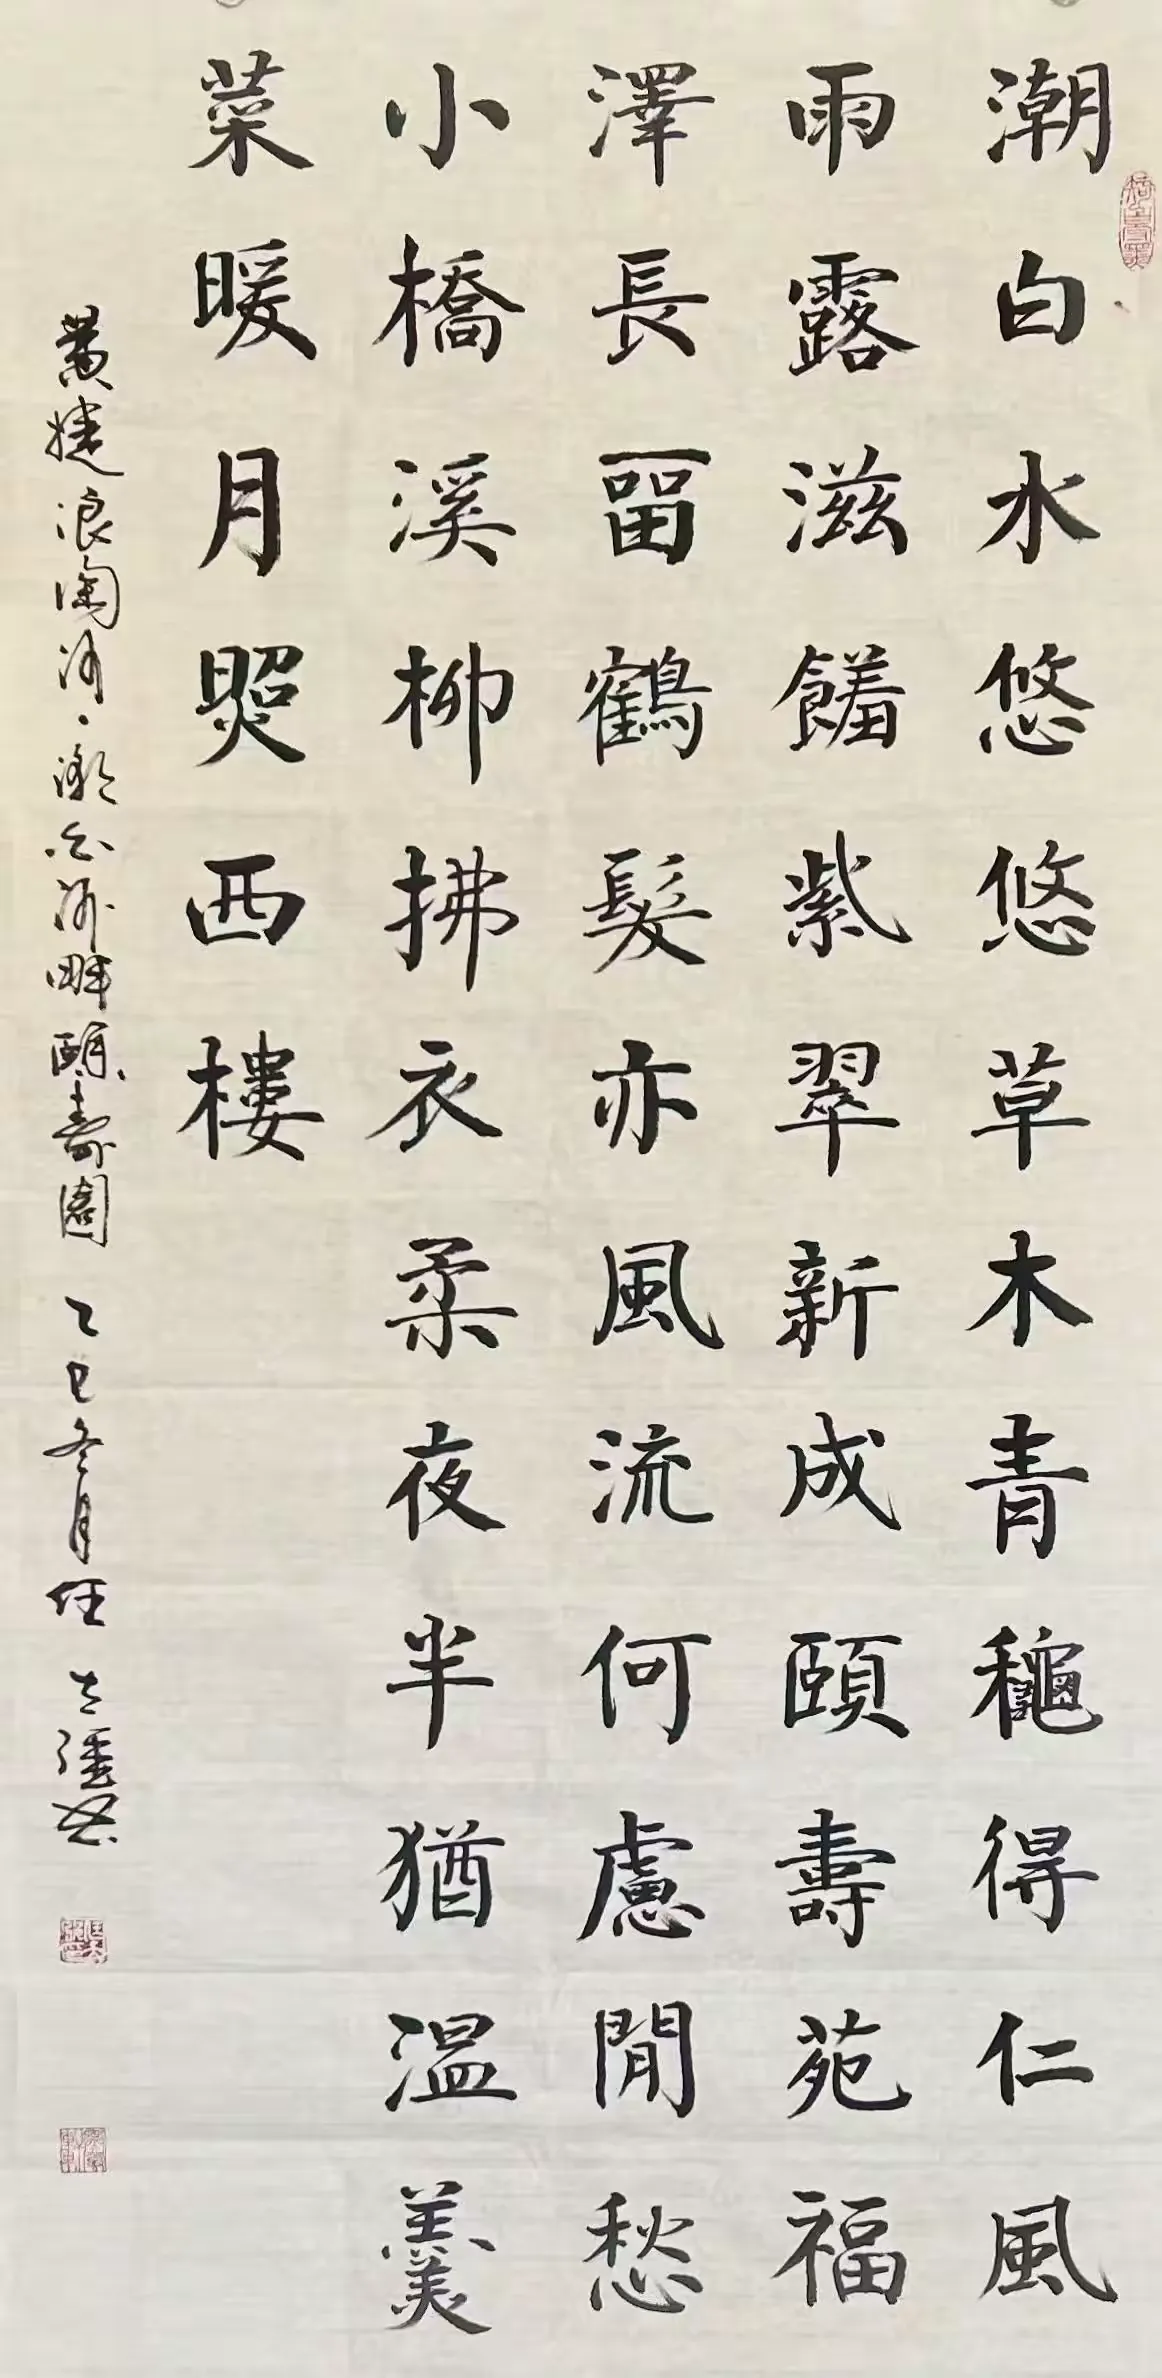 潮白水悠悠草木青龝得仁風
雨露滋饈紫翠新成頤壽苑福
澤長畱鶴髮亦風流何慮閒愁
小橋溪柳拂衣柔夜半猶溫羹
菜暖月照西樓
黃婕浪淘沙·潮白河畔頤壽園 乙巳冬月任